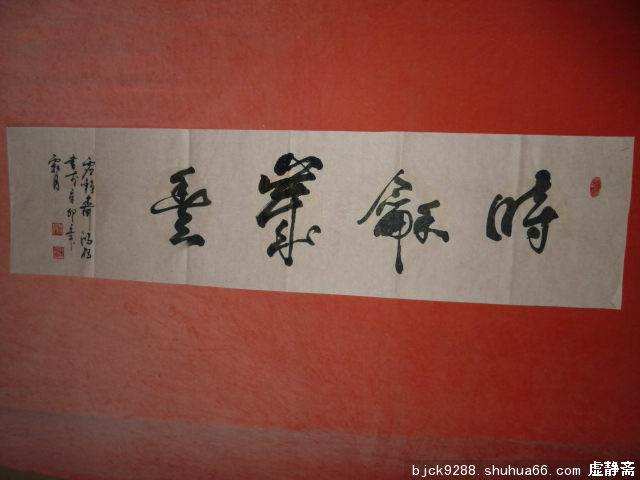 時龢歲豐
虛靜齋
書於辛卯年
霜月
bjck9288.shuhua66.com 虚静斋